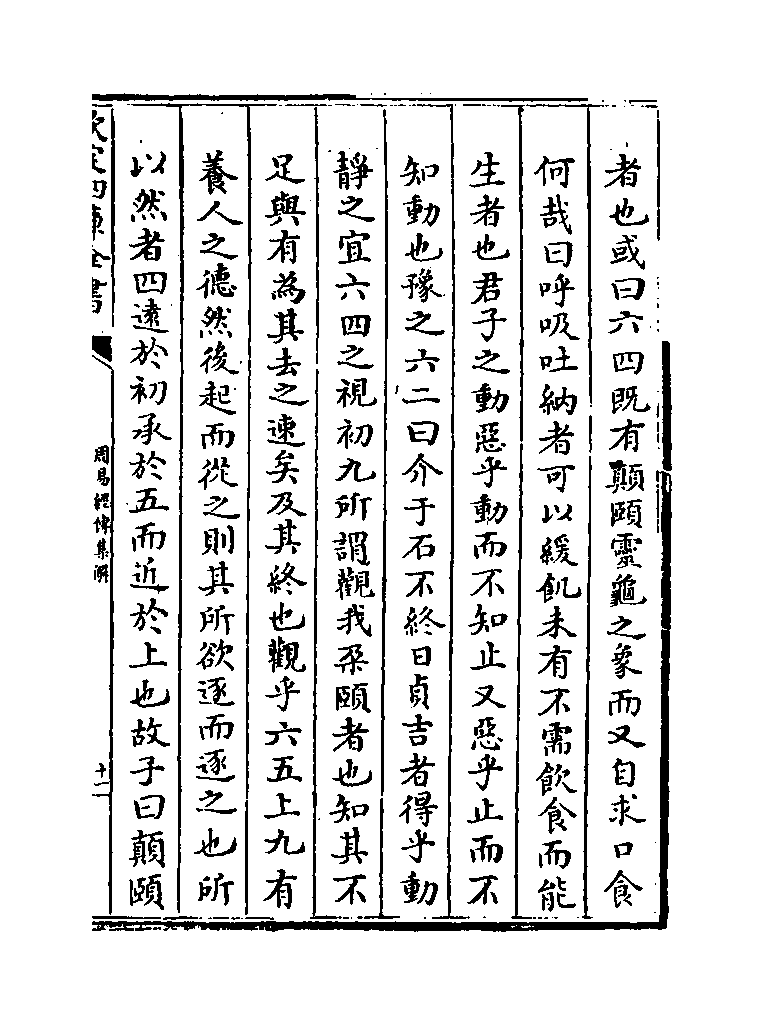 者也或曰六四既有顛頤靈龜之象而又自求口食
何哉曰呼吸吐納者可以緩飢未有不需飲食而能
生者也君子之動惡乎動而不知止又惡乎止而不
知動也豫之六二曰介于石不終日貞吉者得乎動
靜之宜六四之視初九所謂觀我朶頤者也知其不
足與有為其去之速矣及其終也觀乎六五上九有
養人之德然後起而從之則其所欲逐而逐之也所
以然者四遠於初承於五而近於上也故子曰顛頤
欽定四庫全書
周易經傳集解
十二